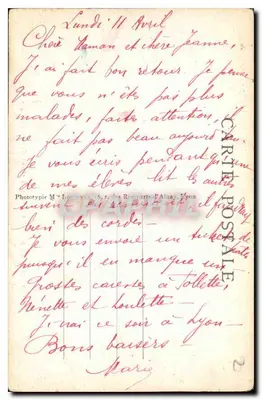 Lundi 11 Avril
Chère Maman et chère Jeanne,
J'ai fait bon retour. Je pense
que vous n'êtes pas plus
malades, faites attention, il
ne fait pas beau aujourd'hui
Je vous écris pendant qu'une
de mes élèves lit les autres
suivent
bien des cordes -
Je vous envoie un
puisqu'il en manque un
Grosses caresses à Follette,
Nénette et Loulette -
J'irai ce soir à Lyon -
Bons baisers -
Mary
CARTE POSTALE
Phototypie
2